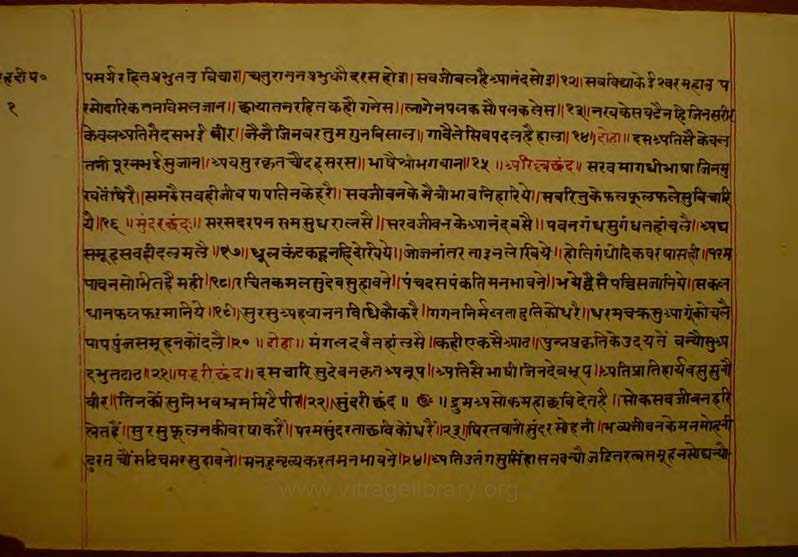 हृदीप०
१
पसर्गरहितप्रभुतनुविचार॥ चतुराननप्रभुकौदरसहोइ॥ सवजीवलहैआनंदसोइ॥१२॥ सवविद्याकेईश्वरमहान प
रमोदारिकतनविमलजान॥ छायातनरहितकहौगनेस॥ लागेनपलकसौपलकलेस॥१३॥ नखकेसवढैनहिजिनसरीर
केवलअतिसैदसभईवीर॥ जैजैजिनवरतुमगुनविसाल॥ गावैतेसिवपदलहैहाल॥१४॥ दोहा॥ दसअतिसैकेवल
तनीपूरनभईसुजान॥ अवसुरकृतचौदहसरस॥ भाषैश्रीभगवान॥१५॥ अरिल्लछंद॥ सरवमागधीभाषाजिनमु
खतेंषिरै॥ समझैसवहीजीवपापतिनकेहरै॥ सवजीवनकेमैत्रीभावनिहारिये॥ सवरितुकेफलफूलफलेसुविचारि
यै॥१६॥ सुंदरछंदः॥ सरसदरपनसमसुधरालसै॥ सरवजीवनकेआनंदबसै॥ पवनगंधसुगंधतहांचलै॥ अघ
समूहसवहीदलमलै॥१७॥ धूलकंटकहूनहिदेखिये॥ जोजनांतरताइनलेखिये॥ होतिगंधोदिकवरषासही॥ परम
पावनसोभितहैमही॥१८॥ रचितकमलसुदेवसुहावने॥ पंचदसपंकतिमनभावने॥ भयेद्वैसैपच्चिसजानिये॥ सकल
धानफलफरमानिये॥१९॥ सुरसुअह्वाननविधिकौकरै॥ गगननिर्मलतादुतिकोधरै॥ धरमचक्रसुआगूंकोचलै
पापपुंजसमूहनकोंदलै॥२०॥ दोहा॥ मंगलदर्वतझंलसै॥ कहीएकसैआठ॥ पुन्यप्रकृतिकेउदयतें वन्यौसुअ
दभुतठाठ॥२१॥ पद्धरीछंद॥ दसचारिसुदेवनकृतअनूप॥ अतिसैभाषीजिनदेवभूप॥ अतिप्रातिहार्यवसुसुनौ
वीर॥ तिनकोंसुनिभवभ्रममिटैपीर॥२२॥ सुंदरीछंद॥ द्रुमअसोकमहाछविदेतहै॥ सोकसवजीवनहरि
लेतहैं॥ सुरसुफूलनकीवरषाकरैं॥ परमसुंदरताछविकोंधरैं॥२३॥ षिरतवानीसुंदरसोहनी॥ भव्यजीवनकेमनमोहनी
ढुरतचौंसठिचमरसुहावने॥ मनहुनृत्यकरतमनभावने॥२४॥ अतिउतंगसुसिंहासनवन्यौ जडितरत्नसमूहनसोघन्यौ
www.vitragelibrary.org